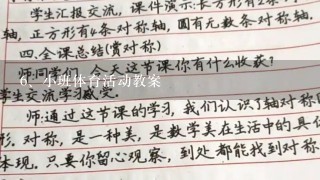 学生汇报交流，课件演示：长方形有2条
轴，正方形有4条对称轴，圆有无数条对称轴.
四.全课总结(赏对称)
师:同学们，今天这节课你有什么收获?
6、小班体育活动教案
学生交流学习感受.
师:通过这节课的学习，我们认识了轴对称
形.对称，是一种美，是数学美在生活中的具
体现.只要你留心观察，到处都能找到对称